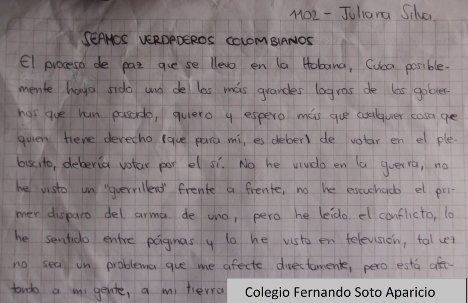 1102 - Juliana Silva
SEAMOS VERDADEROS COLOMBIANOS
El proceso de paz que se llevo en la Habana, Cuba posible-
mente haya sido uno de los más grandes logros de los gobier-
nos que han pasado, quiero y espero más que cualquier cosa que
quien tiene derecho (que para mi, es deber) de votar en el ple-
biscito, debería votar por el sí. No he vivido en la guerra, no
he visto un "guerrillero" frente a frente, no he escuchado el pri-
mer disparo del arma de uno, pero he leído el conflicto, lo
he sentido entre páginas y lo he visto en televisión, tal vez
no sea un problema que me afecte directamente, pero está afec-
tando a mi gente, a mi tierra
Colegio Fernando Soto Aparicio